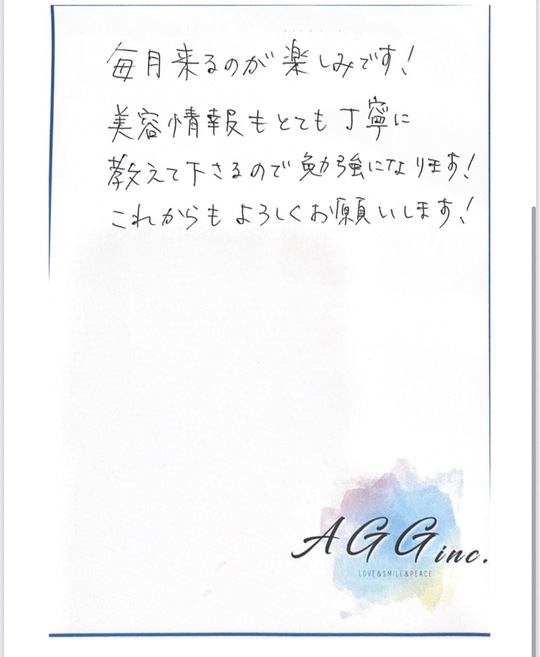 毎月来るのが楽しみです!
美容情報もとても丁寧に
教えて下さるので勉強になります!
これからもよろしくお願いします!
AGGinc.
LOVE&SMILE&PEACE